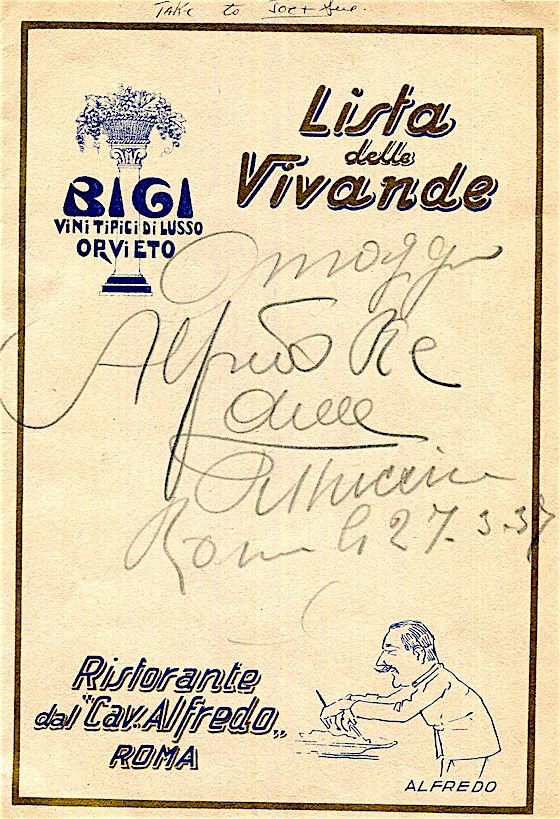 Take to Joe +
Lista
delle
Vivande
BIGI
VINI TIPICI DI LUSSO
ORVIETO
Omaggio
Alfredo Re
delle
Fettuccine
Roma li 27.3.37
Ristorante
dal "Cav. Alfredo"
ROMA
ALFREDO